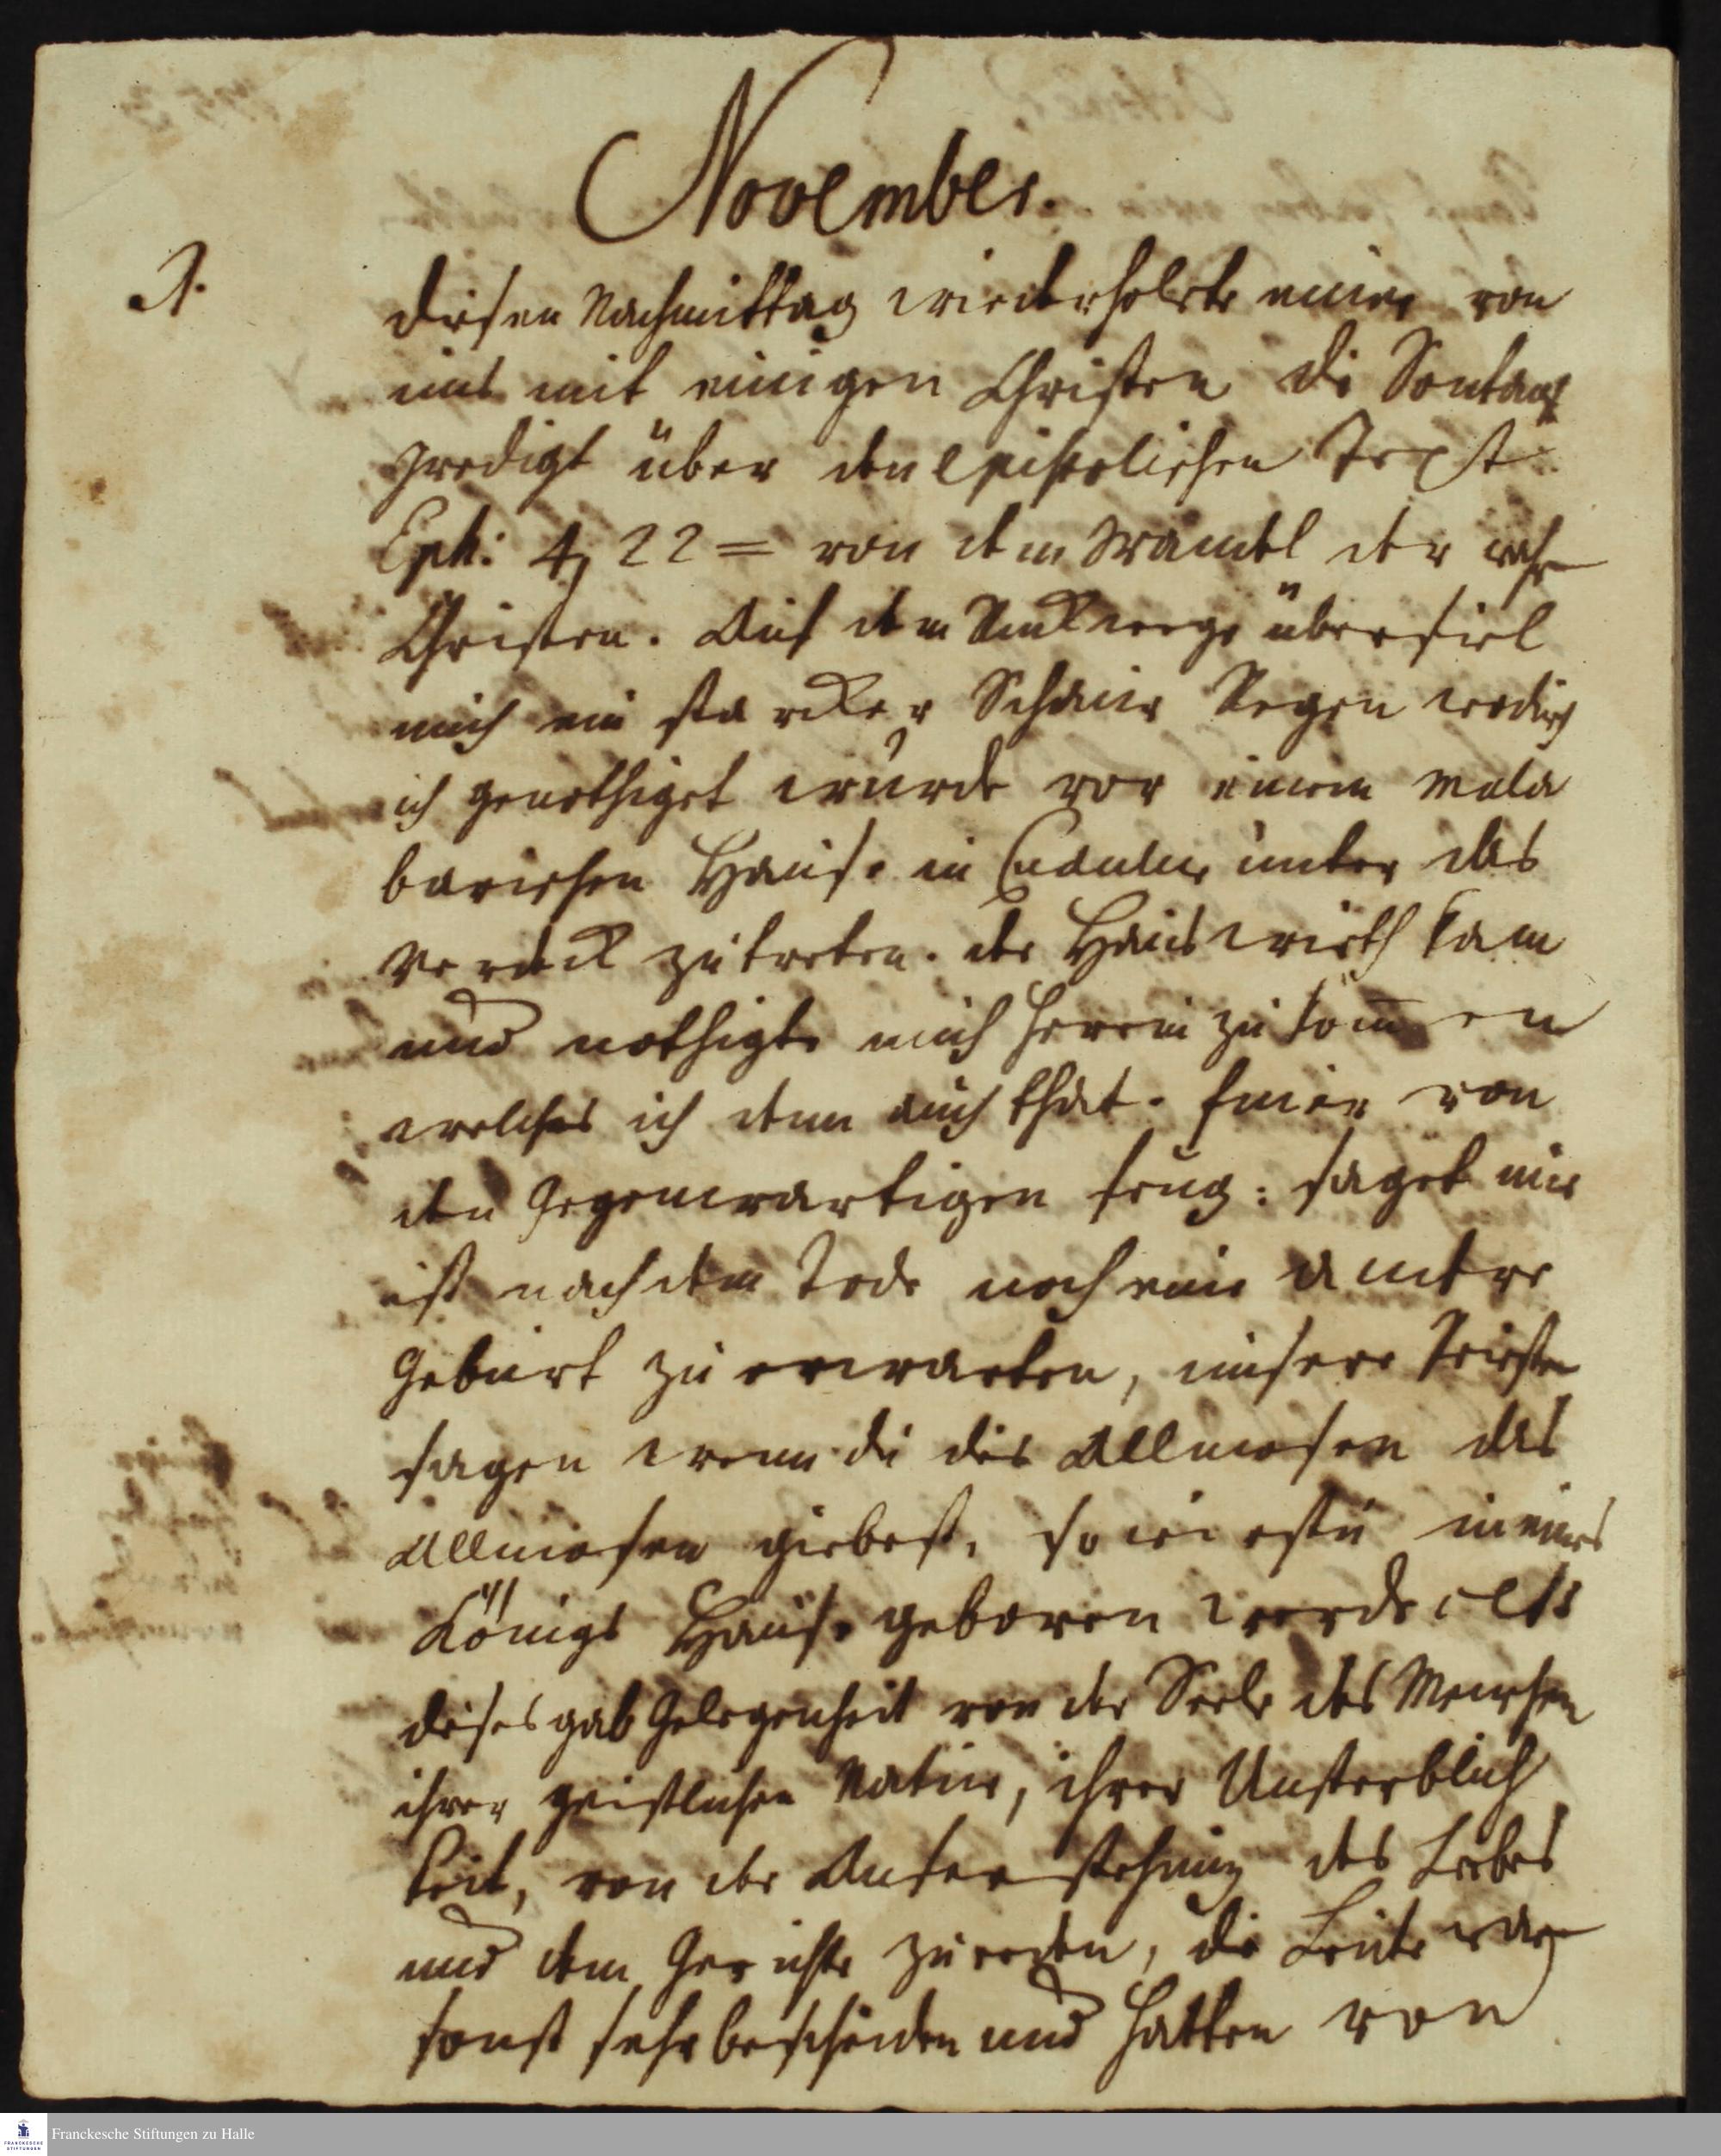 November.
1.
diesen Nachmittag wiederholete einer von
uns mit einigen Christen die Sontags
predigt über den epistolischen Text
Eph: 4, 22 = von dem Wandel der wahren
Christen. Auf dem Rückwege überfiel
mich ein starcker Schaur Regen wodurch
ich genöthiget wurde vor einem mala
barischen Hause in Cudulur unter das
Verdeck zu treten. der Hauswirth kam
und nothigte mich herein zu kommen
welches ich denn auch that. Einer von
den Gegenwartigen frug: saget mir
ist nach dem Tode noch eine andere
Geburt zu erwarten, unsere Priester
sagen wenn du die Allmosen das
Allmosen giebest, so wirstu in eines
Königs Hause geboren werden
dieses gab Gelegenheit von der Seele des Menschen
ihrer geistlichen Natur, ihrer Unsterblich
keit, von der Auferstehung des Leibes
und dem Gerichte zu reden, die Leute waren
sonst sehr bescheiden und hatten von
Franckesche Stiftungen zu Halle